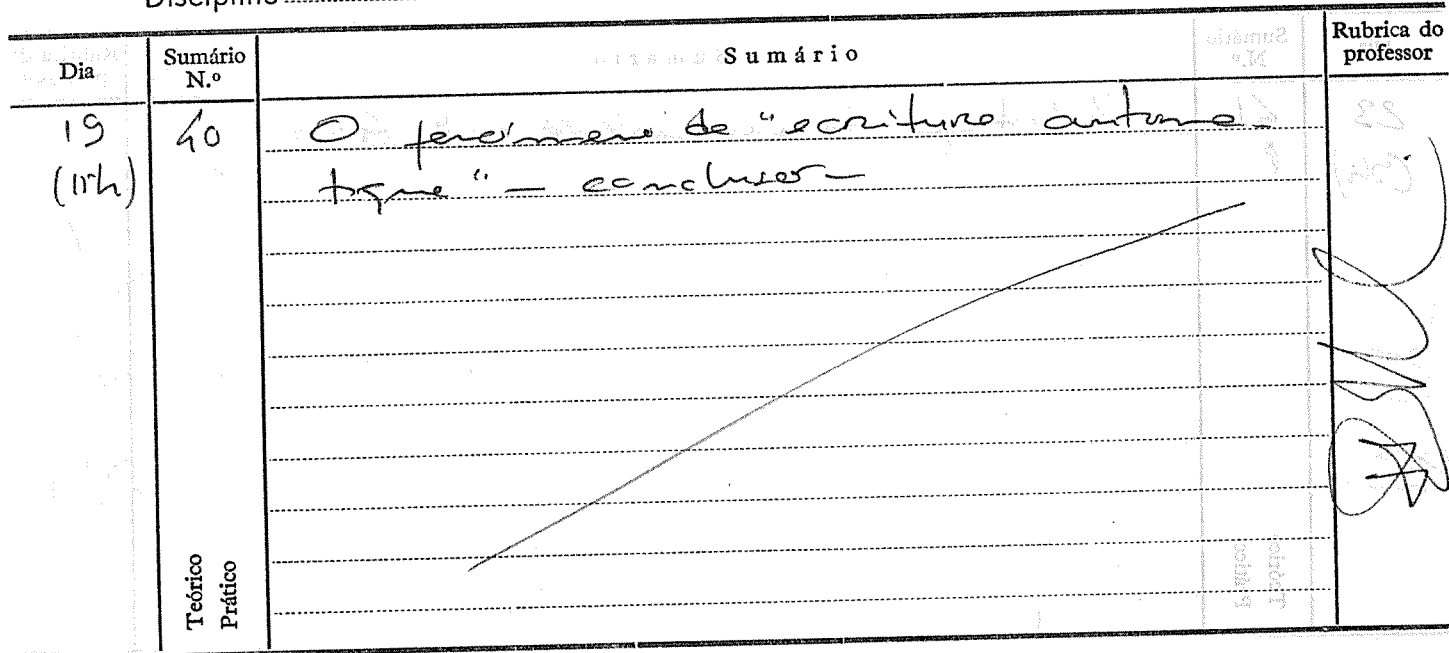 Disciplina
Dia
Sumário N.º
Sumário
Rubrica do professor
19
40
O fenómeno de "écriture automa-
(15h)
tique" — conclusão —
Teórico
Prático